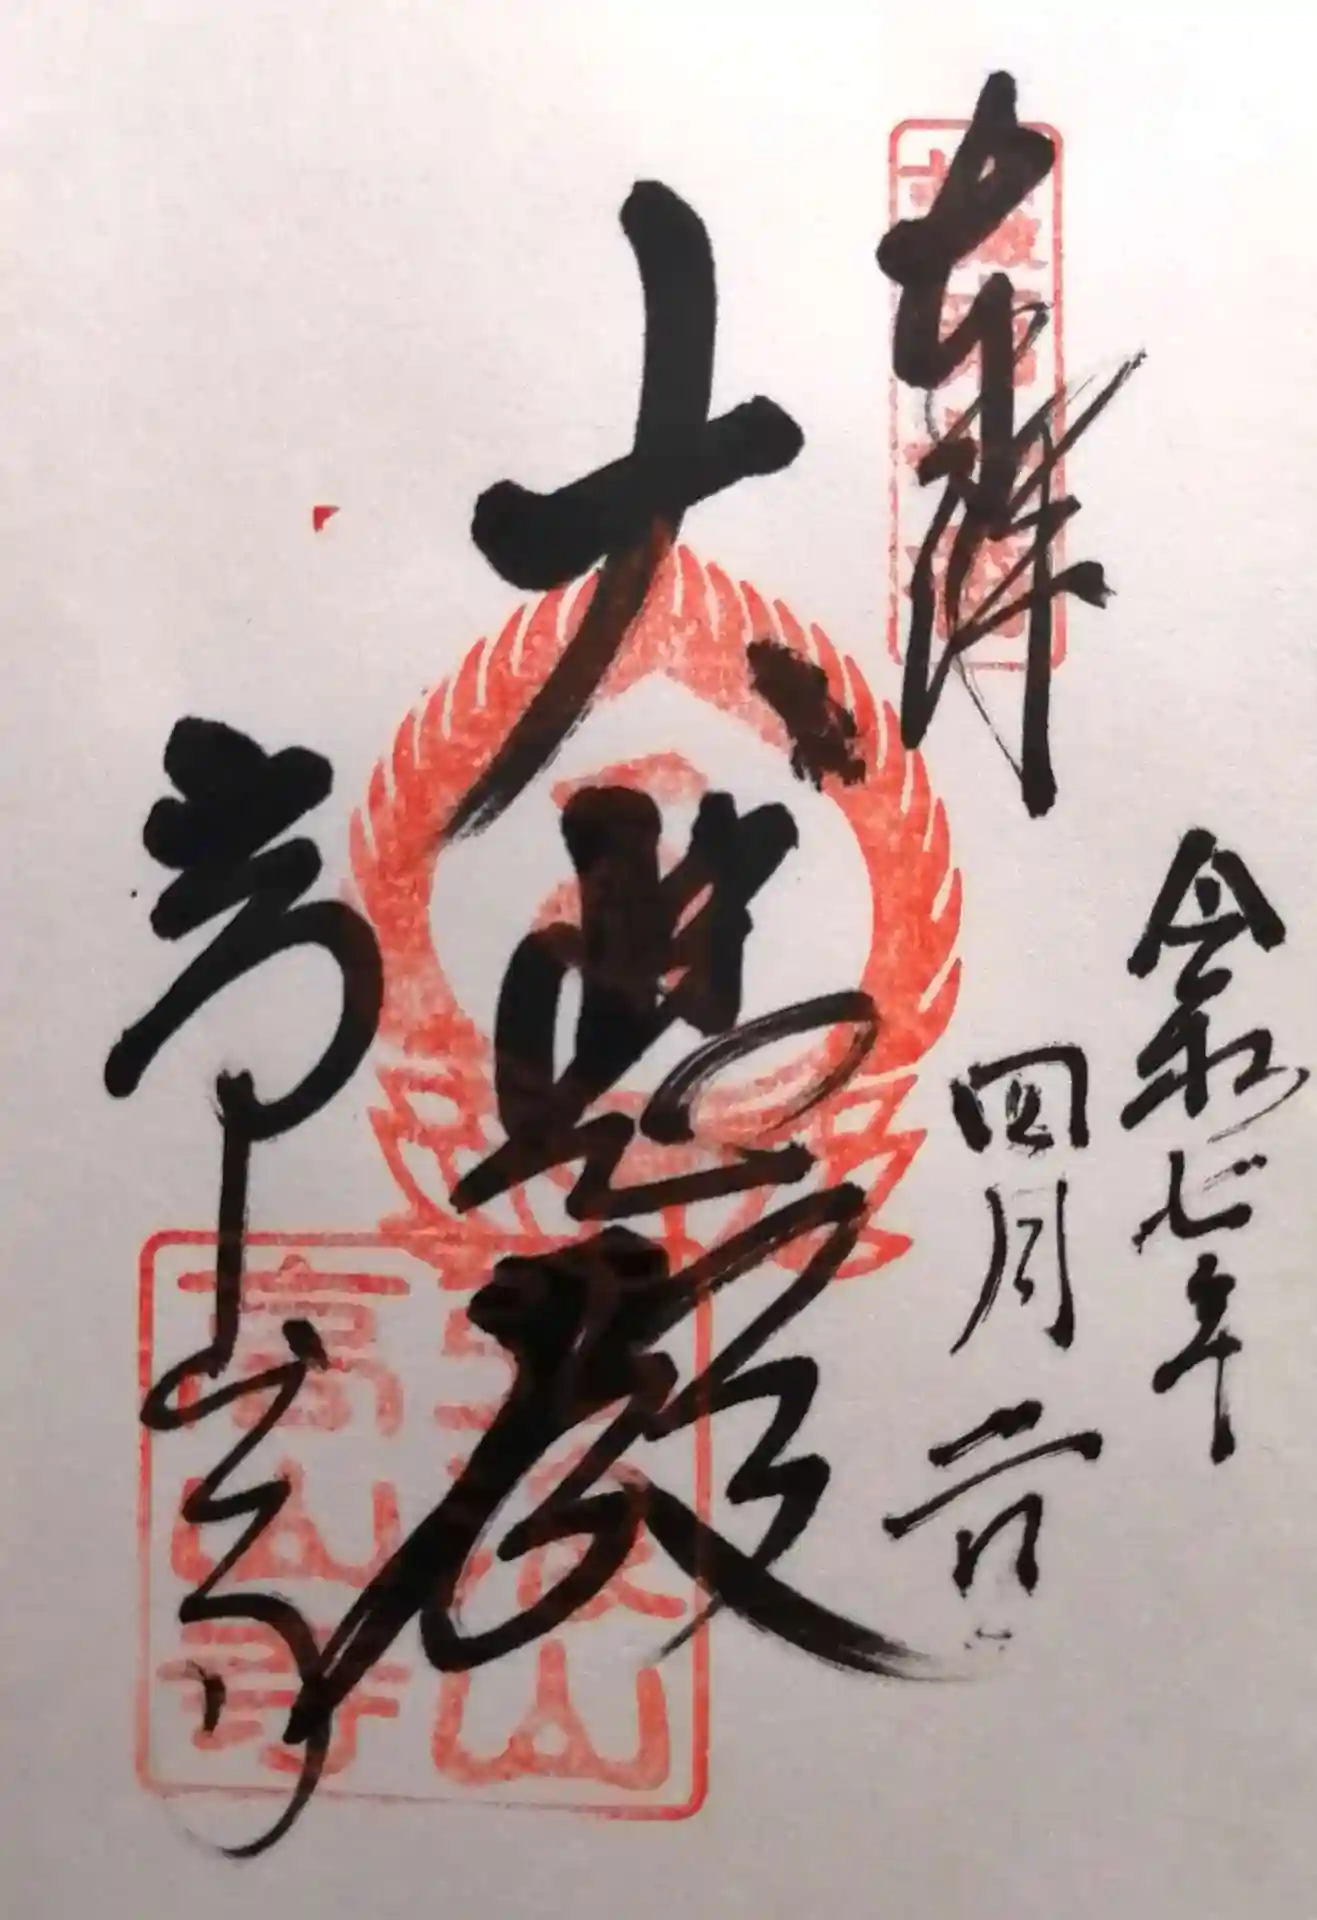 奉拝
令和七年
四月二日
大悲殿
高山寺
弘浪山
高山寺